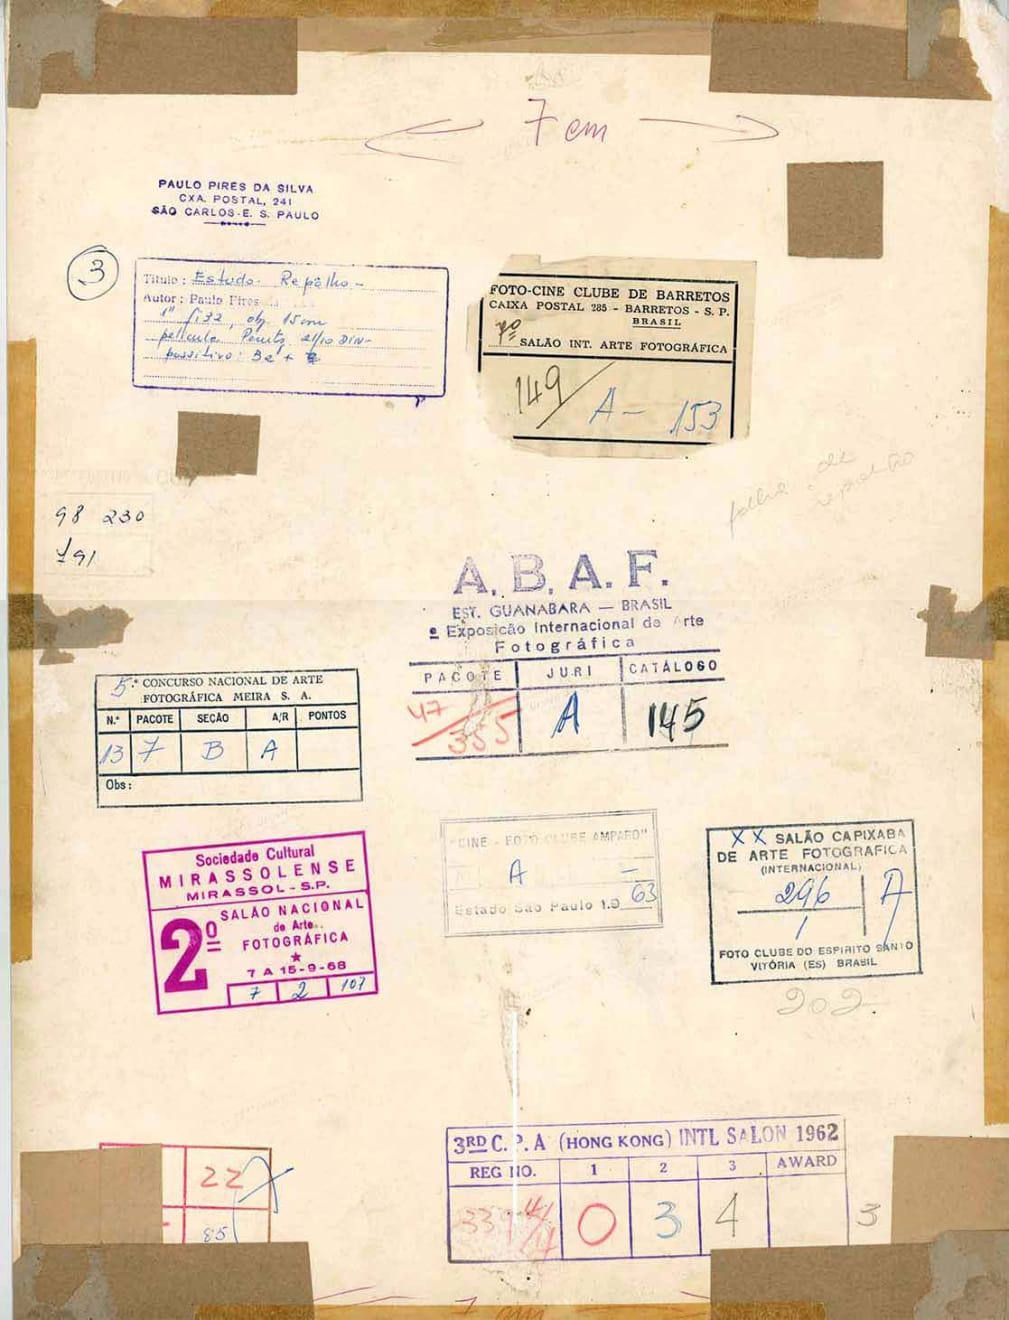 7 cm
PAULO PIRES DA SILVA
CXA. POSTAL, 241
SÃO CARLOS-E. S. PAULO
3
Titulo : Estudo - Repôlho -
Autor : Paulo Pires da
1" fixa, obj. 15cm
pelicula DIN-
positivo: 3e +
FOTO-CINE CLUBE DE BARRETOS
CAIXA POSTAL 285 - BARRETOS - S. P.
BRASIL
7º SALÃO INT. ARTE FOTOGRÁFICA
149/
A - 153
folha de
repolho
98 230
191
A. B. A. F.
EST. GUANABARA — BRASIL
ª Exposicão Internacional de Arte
Fotográfica
PACOTE JURI CATÁLOGO
47/355 A 145
5.º CONCURSO NACIONAL DE ARTE
FOTOGRÁFICA MEIRA S. A.
N.º PACOTE SEÇÃO A/R PONTOS
13 7 B A
Obs:
"CINE - FOTO CLUBE AMPARO"
A -
Estado São Paulo 1.9 63
Sociedade Cultural
MIRASSOLENSE
MIRASSOL - S.P.
2º SALÃO NACIONAL
de Arte
FOTOGRÁFICA
7 A 15-9-68
7 2 107
XX SALÃO CAPIXABA
DE ARTE FOTOGRAFICA
(INTERNACIONAL)
296 A
/
FOTO CLUBE DO ESPIRITO SANTO
VITÓRIA (ES) BRASIL
202
22
85
3RD C. P. A (HONG KONG) INTL SALON 1962
REG NO. 1 2 3 AWARD
339 0 3 4
3
7 cm